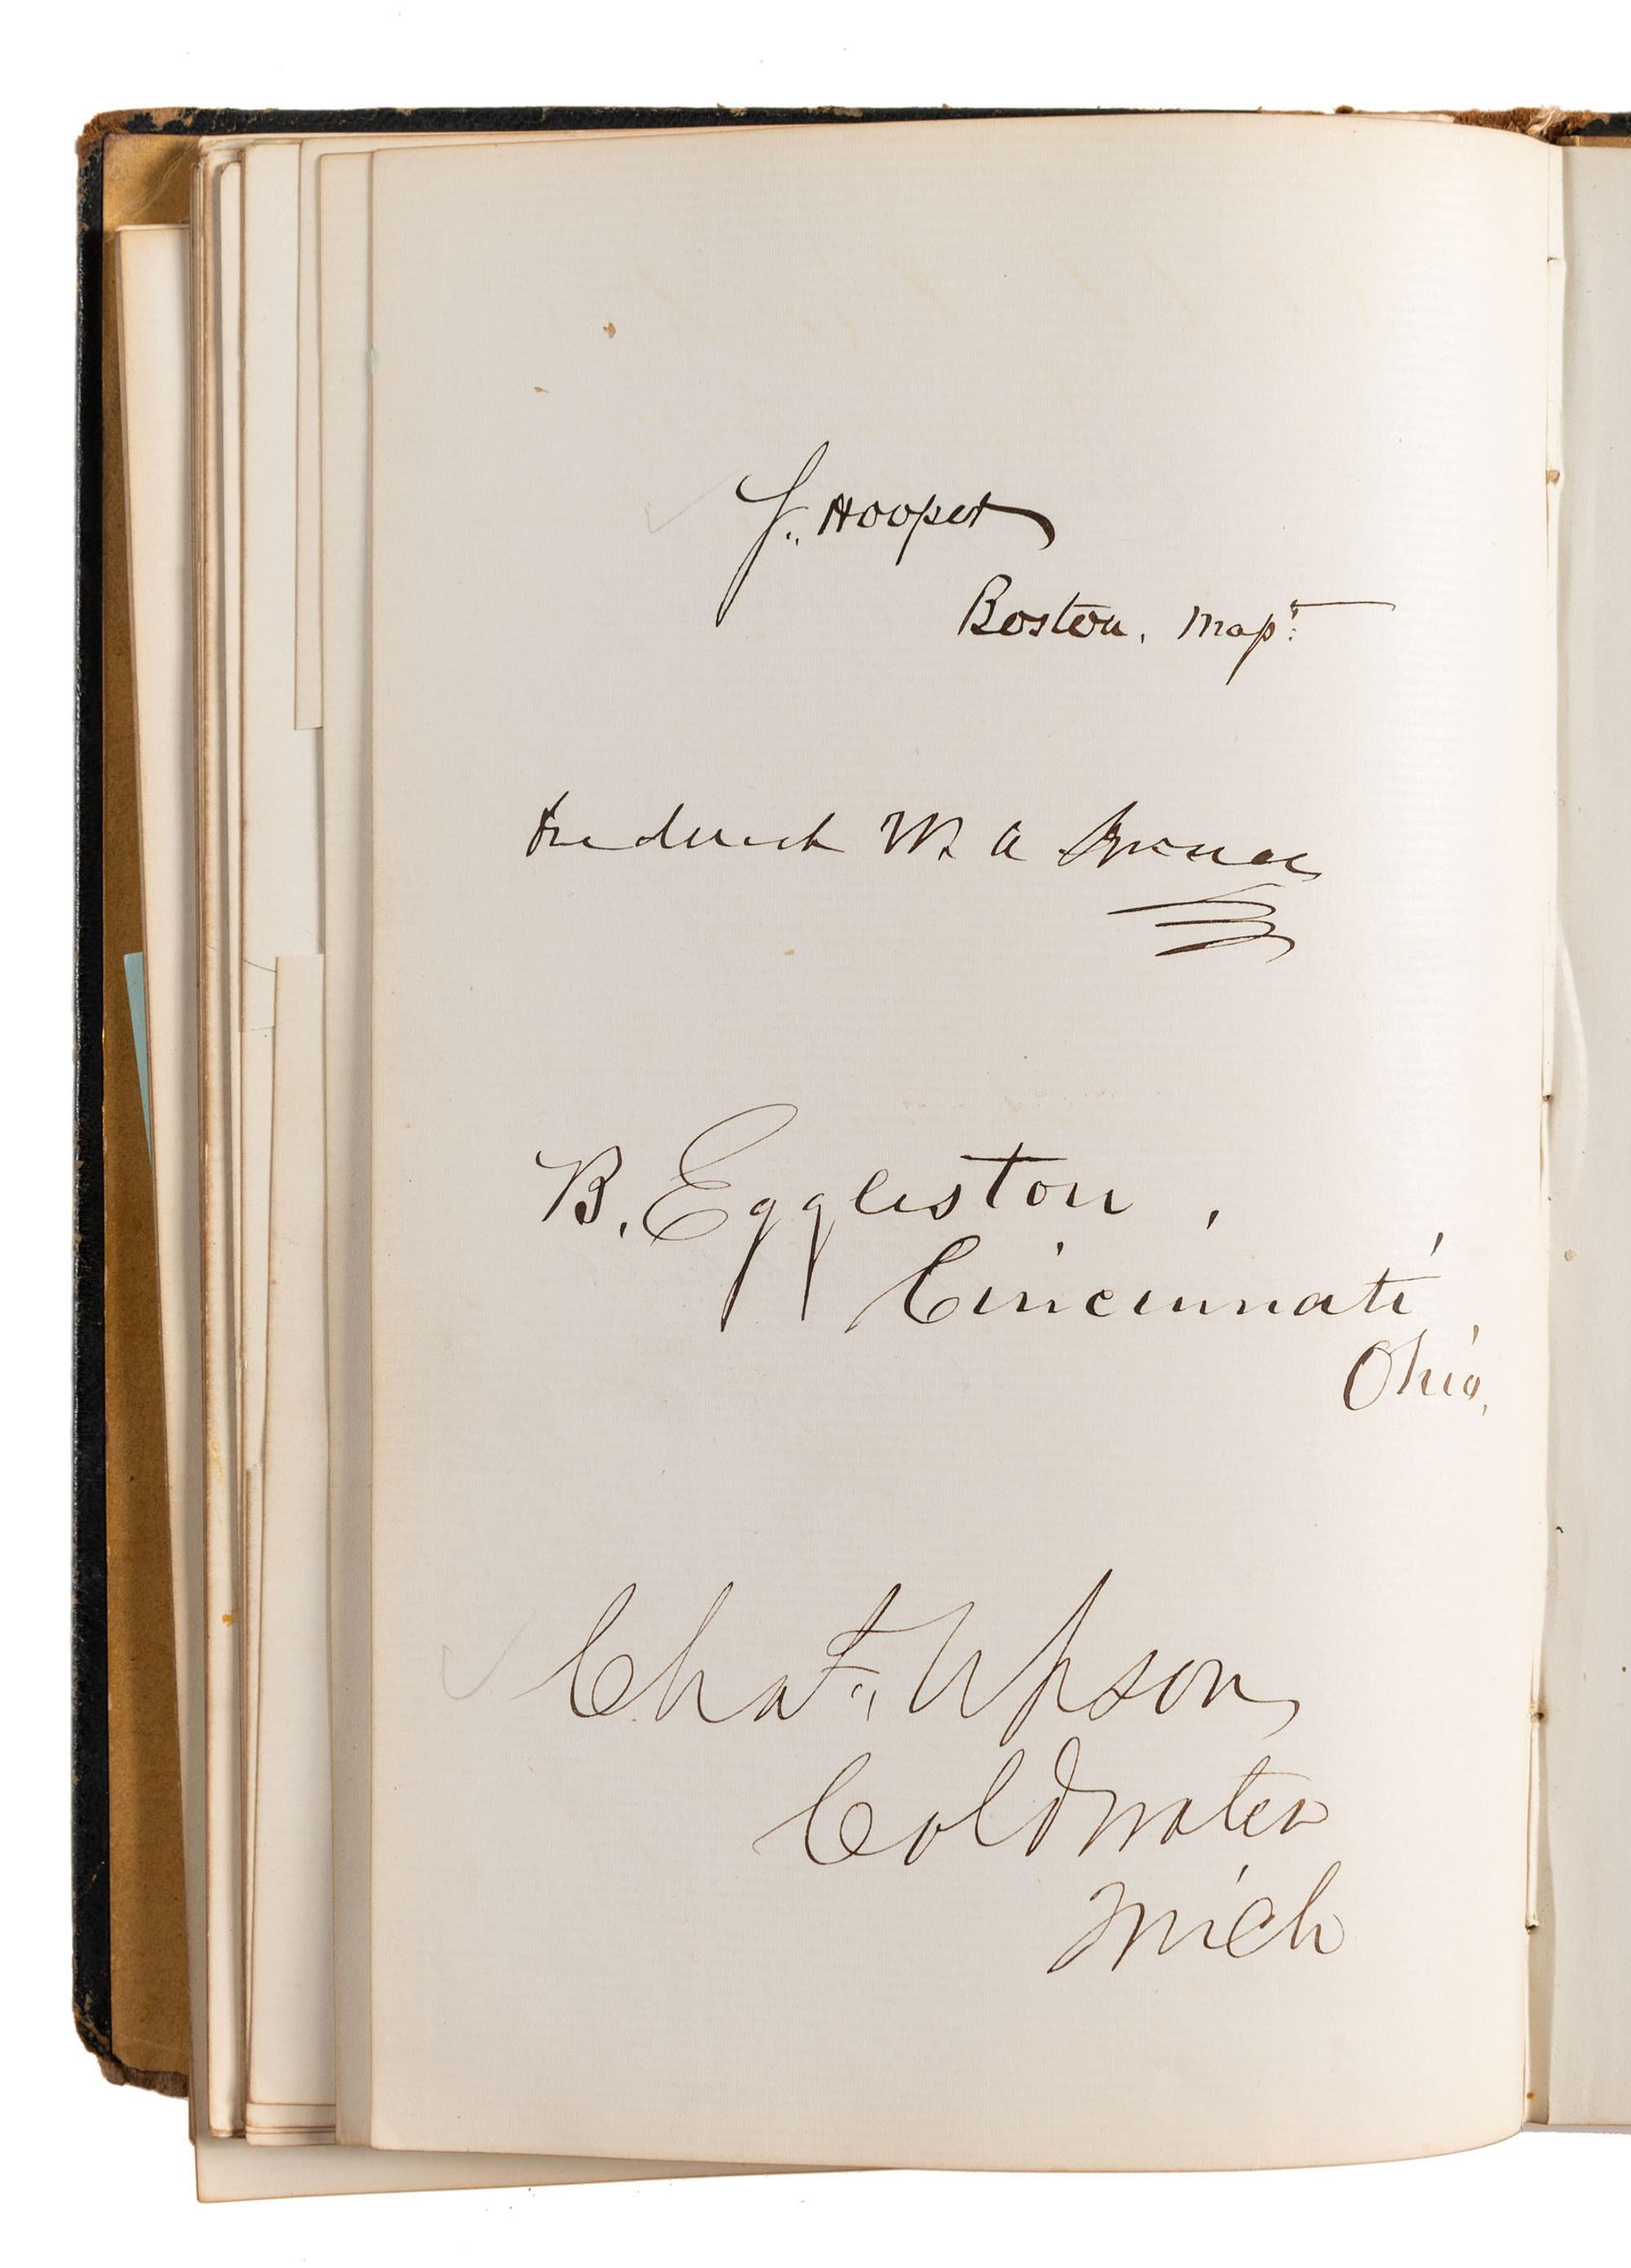 S. Hooper
Boston, Mass:
Frederick W. A. Bruce
B. Eggleston,
Cincinnati
Ohio.
Chas. Upson
Coldwater
Mich